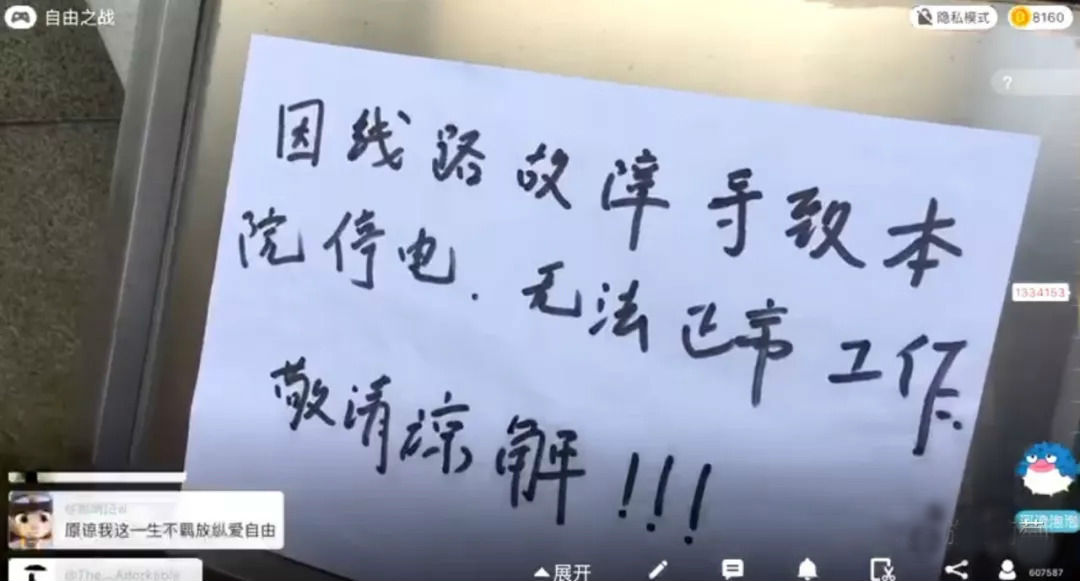 自由之战
隐私模式
8160
?
因线路故障导致本
院停电.无法正常工作
敬请谅解!!!
1334153
原谅我这一生不羁放纵爱自由
@The__Adorkable
展开
607587